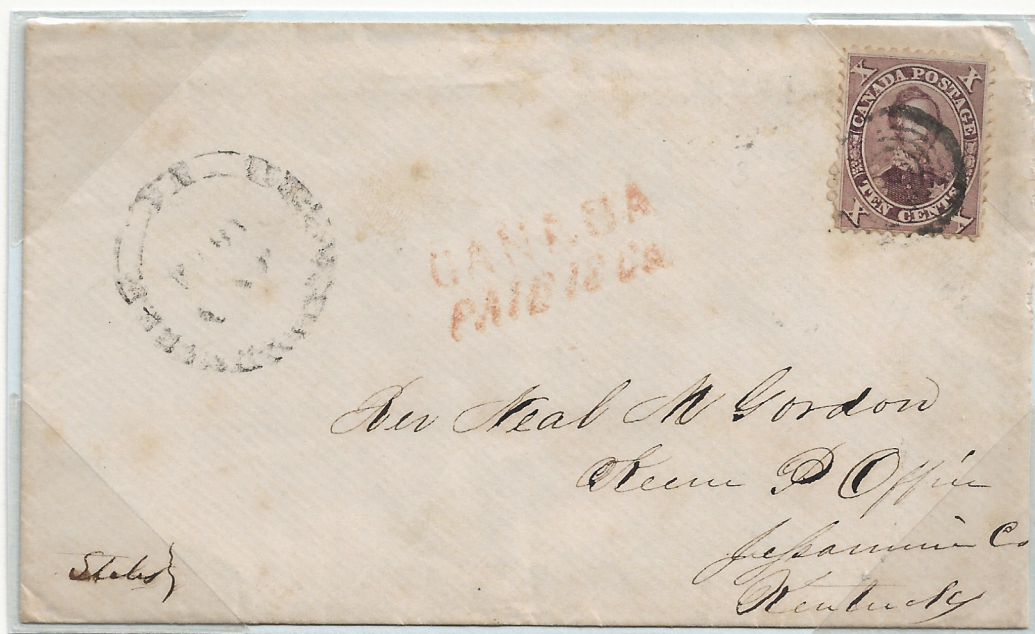 X X
CANADA POSTAGE
TEN CENTS
X X
CANADA
PAID 10 Cts.
Rev Neal M Gordon
Keene P Office
Jessamine Co
Kentucky
States